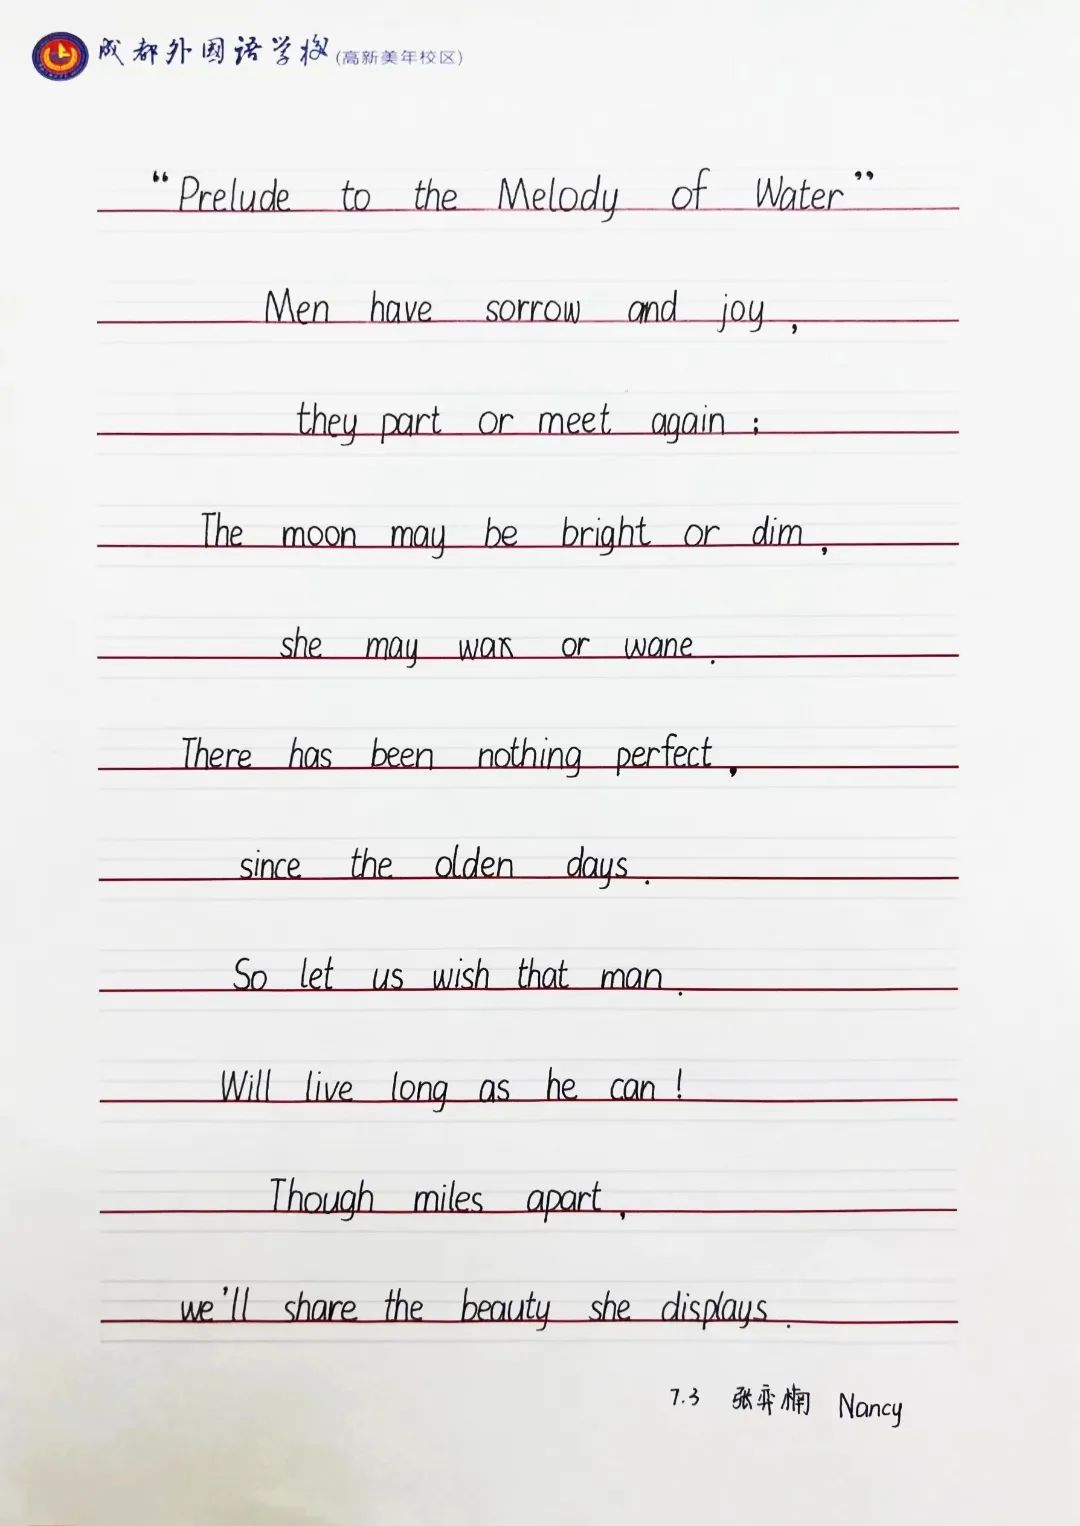 成都外国语学校(高新美年校区)
“Prelude to the Melody of Water”
Men have sorrow and joy,
they part or meet again;
The moon may be bright or dim,
she may wax or wane.
There has been nothing perfect,
since the olden days.
So let us wish that man.
Will live long as he can!
Though miles apart,
we'll share the beauty she displays.
7.3 张弈楠 Nancy